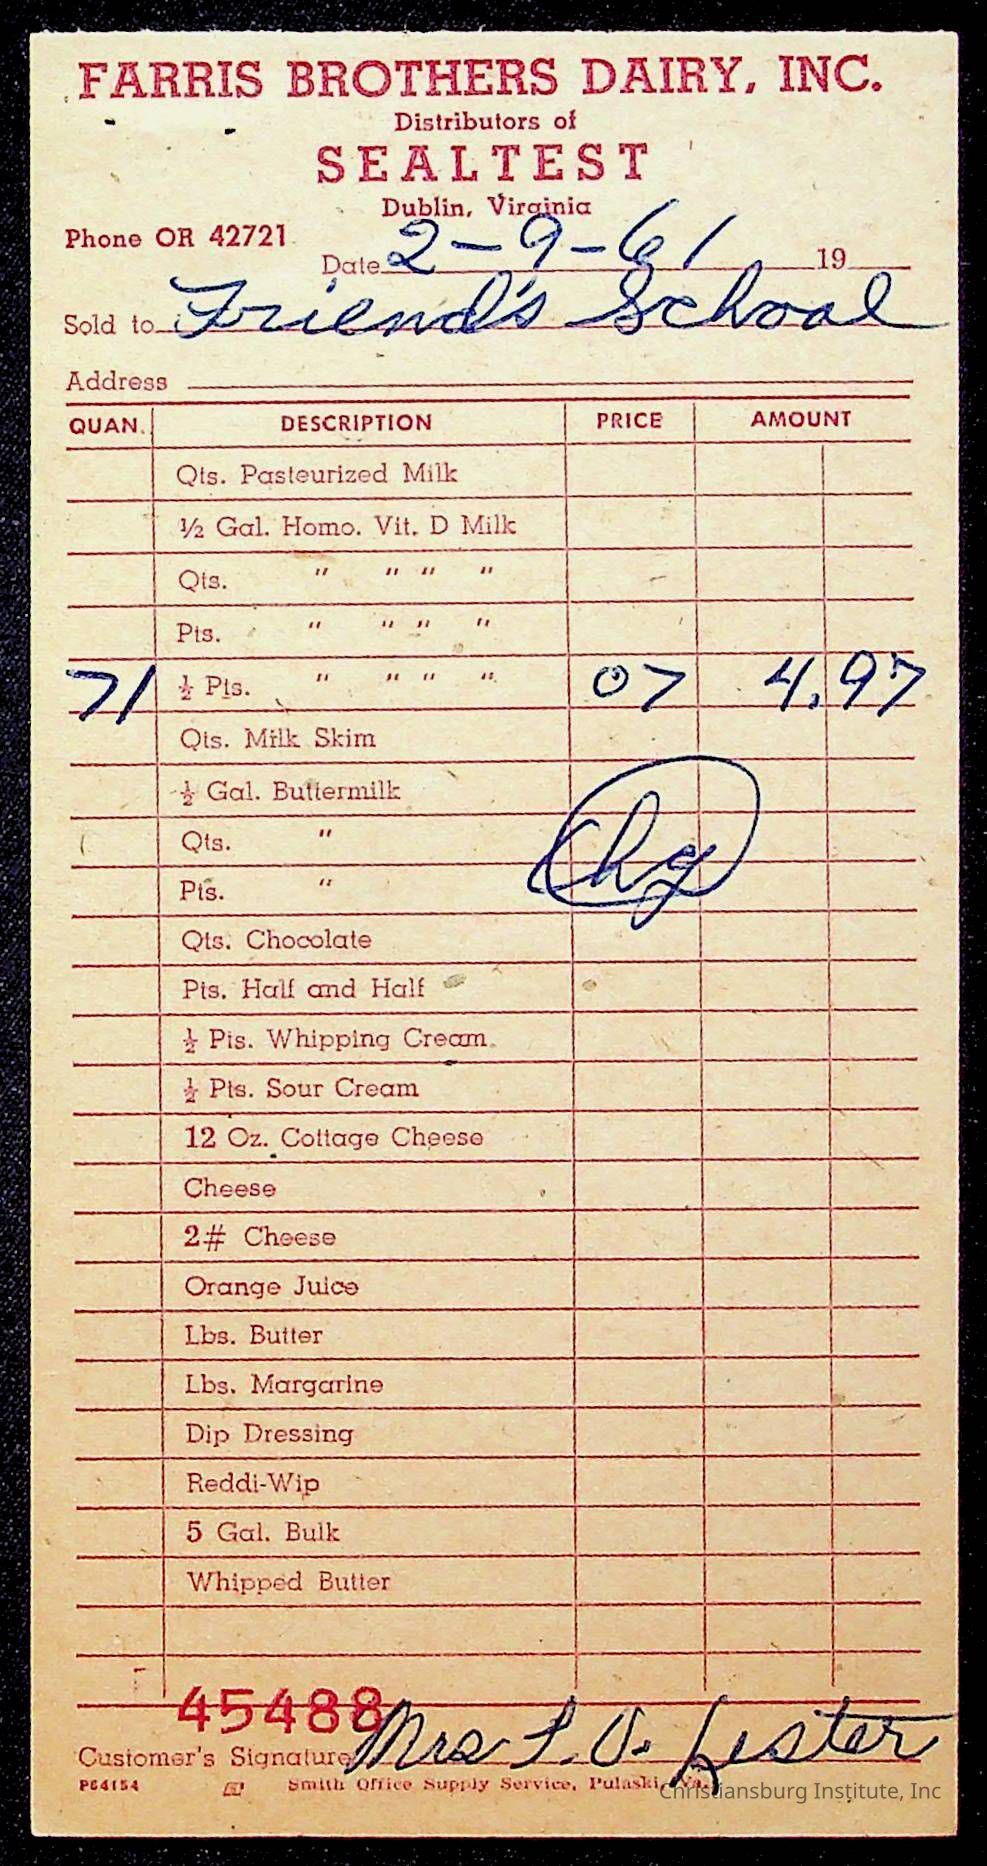 FARRIS BROTHERS DAIRY, INC.
Distributors of
SEALTEST
Dublin, Virginia
Phone OR 42721
Date 2-9-61 19
Sold to Friend's School
Address
QUAN. DESCRIPTION PRICE AMOUNT
Qts. Pasteurized Milk
½ Gal. Homo. Vit. D Milk
Qts. " " " "
Pts. " " " "
71 ½ Pts. " " " " 07 4.97
Qts. Milk Skim
½ Gal. Buttermilk
Chg
Qts. "
Pts. "
Qts. Chocolate
Pts. Half and Half
½ Pts. Whipping Cream
½ Pts. Sour Cream
12 Oz. Cottage Cheese
Cheese
2# Cheese
Orange Juice
Lbs. Butter
Lbs. Margarine
Dip Dressing
Reddi-Wip
5 Gal. Bulk
Whipped Butter
45488
Customer's Signature Mrs L. V. Lester
P64154 Smith Office Supply Service, Pulaski, Va.
Christiansburg Institute, Inc